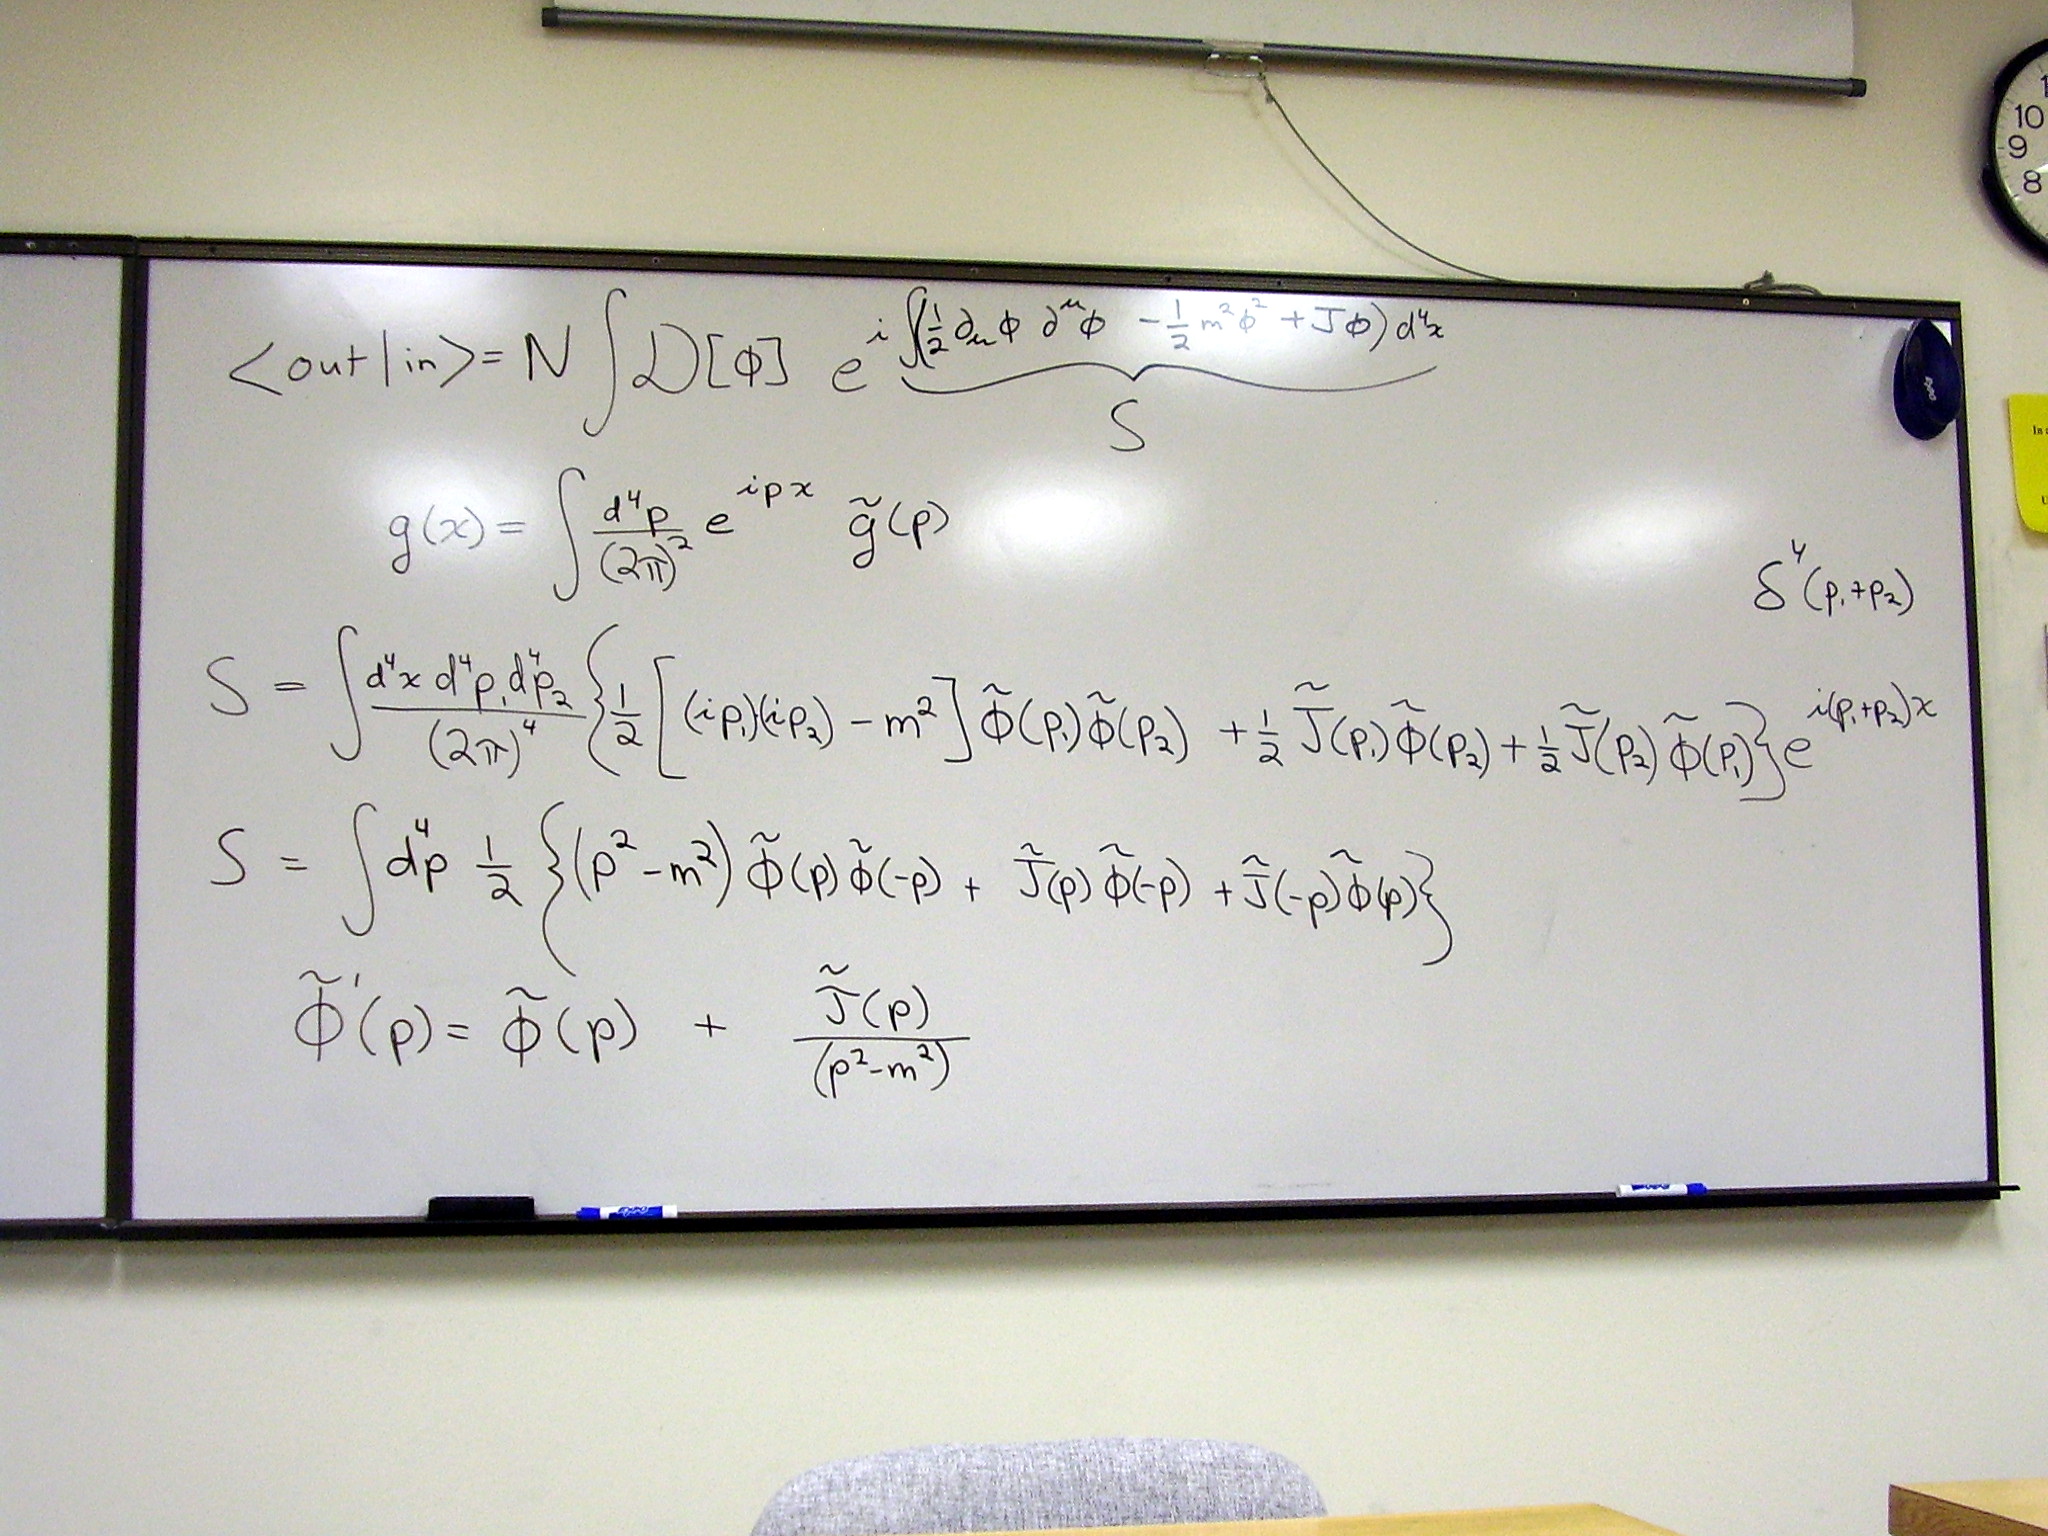 <out|in> = N ∫ D[ϕ] e^{i ∫(½ ∂_μ ϕ ∂^μ ϕ − ½ m² ϕ² + Jϕ) d⁴x}
S
g(x) = ∫ d⁴p/(2π)² e^{ipx} g̃(p)
δ⁴(p₁+p₂)
S = ∫ d⁴x d⁴p₁ d⁴p₂/(2π)⁴ {½ [(ip₁)(ip₂) − m²] ϕ̃(p₁) ϕ̃(p₂) + ½ J̃(p₁) ϕ̃(p₂) + ½ J̃(p₂) ϕ̃(p₁)} e^{i(p₁+p₂)x}
S = ∫ d⁴p ½ {(p² − m²) ϕ̃(p) ϕ̃(−p) + J̃(p) ϕ̃(−p) + J̃(−p) ϕ̃(p)}
ϕ̃′(p) = ϕ̃(p) + J̃(p)/(p² − m²)
10
9
8